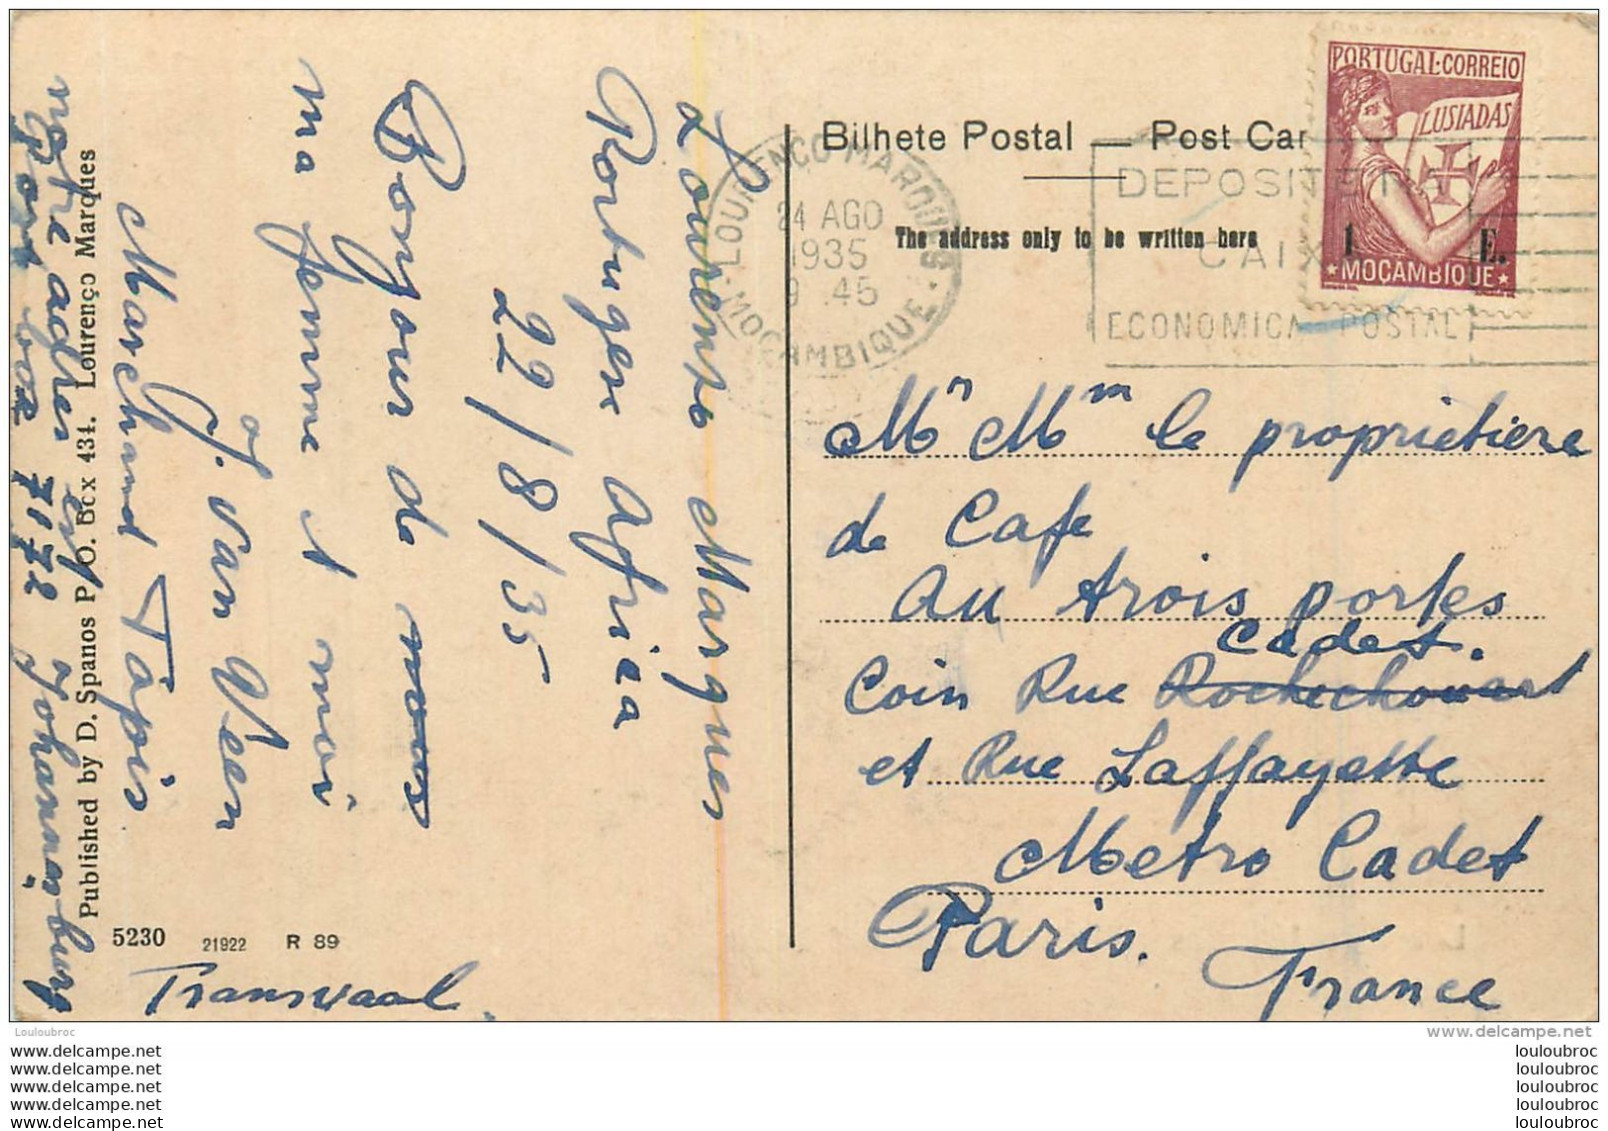 Lourento Marques
Portugese Africa
22/8/35
Bonjour de nous
ma femme et moi
J. van Veen
Marchand Tapis
notre adres est
Post box 7172 Johannesburg
Transvaal
Published by D. Spanos P. O. Box 434. Lourenço Marques
5230 21922 R 89
Bilhete Postal — Post Car
The address only to be written here
LOURENÇO MARQUES
24 AGO
1935
9.45
MOÇAMBIQUE
DEPOSITE NA
CAIX
ECONOMICA POSTAL
PORTUGAL·CORREIO
LUSIADAS
1 E.
MOÇAMBIQUE
Mr Mm le proprietiere
de Cafe
Au trois portes
Cadet.
Coin Rue Rochechouart
et Rue Laffayette
Metro Cadet
Paris.
France
Louloubroc
www.delcampe.net
www.delcampe.net louloubroc
www.delcampe.net louloubroc
www.delcampe.net louloubroc
www.delcampe.net louloubroc
www.delcampe.net louloubroc